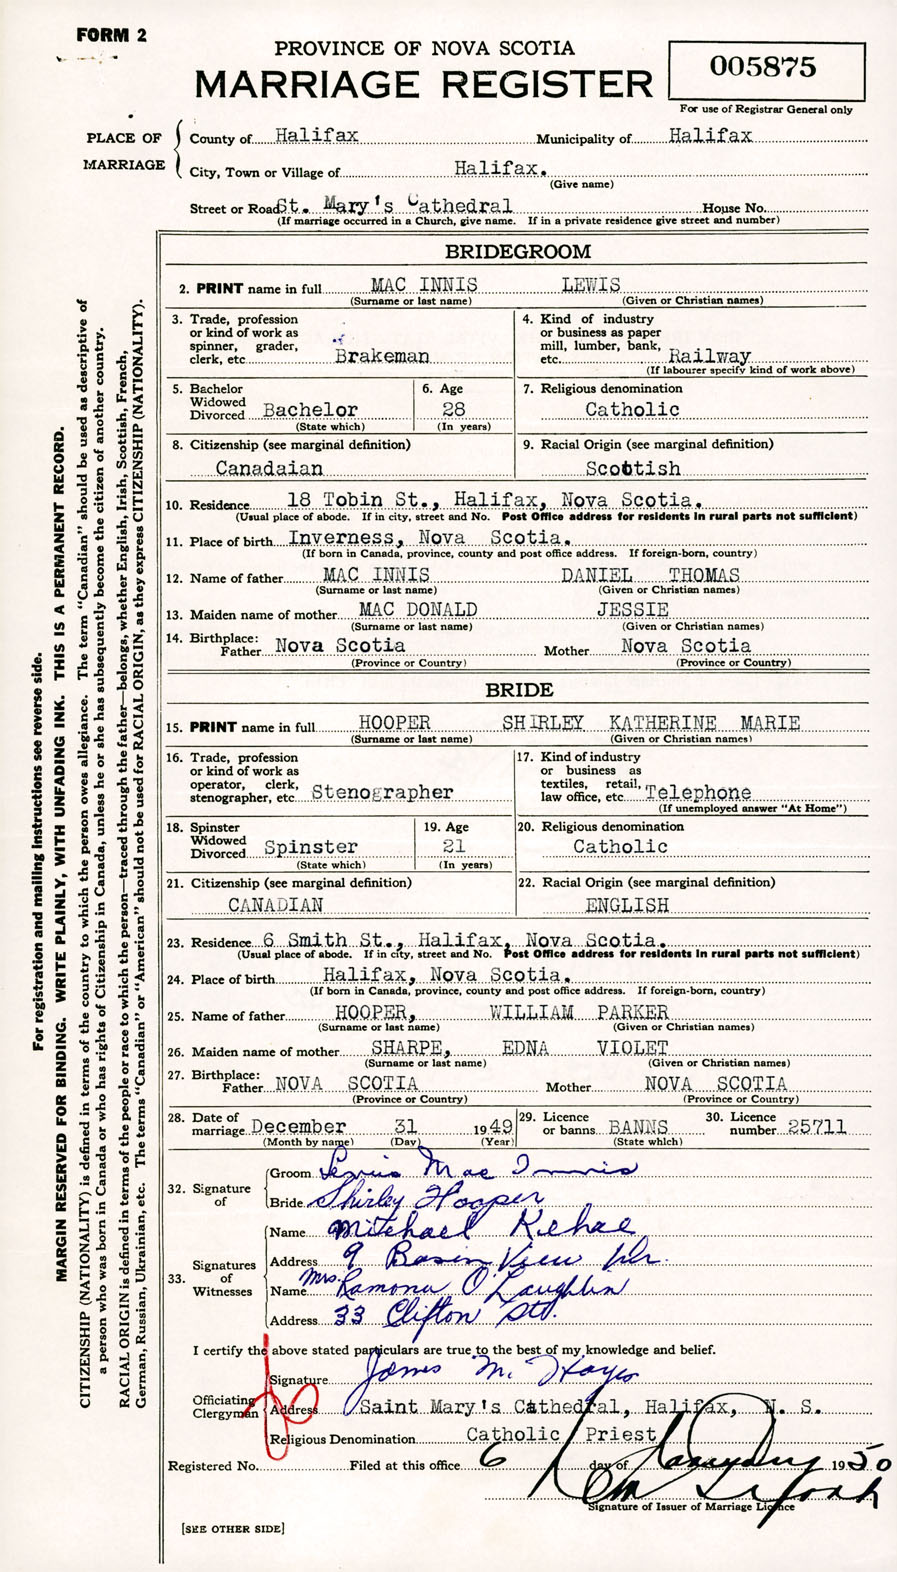 FORM 2
PROVINCE OF NOVA SCOTIA
MARRIAGE REGISTER
005875
For use of Registrar General only
PLACE OF MARRIAGE
County of Halifax Municipality of Halifax
City, Town or Village of Halifax.
(Give name)
Street or Road St. Mary's Cathedral House No.
(If marriage occurred in a Church, give name. If in a private residence give street and number)
BRIDEGROOM
2. PRINT name in full MAC INNIS LEWIS
(Surname or last name) (Given or Christian names)
3. Trade, profession or kind of work as spinner, grader, clerk, etc Brakeman
4. Kind of industry or business as paper mill, lumber, bank, etc. Railway
(If labourer specify kind of work above)
5. Bachelor Widowed Divorced Bachelor
(State which)
6. Age 28
(In years)
7. Religious denomination
Catholic
8. Citizenship (see marginal definition)
Canadaian
9. Racial Origin (see marginal definition)
Scottish
10. Residence 18 Tobin St., Halifax, Nova Scotia.
(Usual place of abode. If in city, street and No. Post Office address for residents in rural parts not sufficient)
11. Place of birth Inverness, Nova Scotia.
(If born in Canada, province, county and post office address. If foreign-born, country)
12. Name of father MAC INNIS DANIEL THOMAS
(Surname or last name) (Given or Christian names)
13. Maiden name of mother MAC DONALD JESSIE
(Surname or last name) (Given or Christian names)
14. Birthplace: Father Nova Scotia Mother Nova Scotia
(Province or Country) (Province or Country)
BRIDE
15. PRINT name in full HOOPER SHIRLEY KATHERINE MARIE
(Surname or last name) (Given or Christian names)
16. Trade, profession or kind of work as operator, clerk, stenographer, etc Stenographer
17. Kind of industry or business as textiles, retail, law office, etc. Telephone
(If unemployed answer "At Home")
18. Spinster Widowed Divorced Spinster
(State which)
19. Age 21
(In years)
20. Religious denomination
Catholic
21. Citizenship (see marginal definition)
CANADIAN
22. Racial Origin (see marginal definition)
ENGLISH
23. Residence 6 Smith St., Halifax, Nova Scotia.
(Usual place of abode. If in city, street and No. Post Office address for residents in rural parts not sufficient)
24. Place of birth Halifax, Nova Scotia.
(If born in Canada, province, county and post office address. If foreign-born, country)
25. Name of father HOOPER, WILLIAM PARKER
(Surname or last name) (Given or Christian names)
26. Maiden name of mother SHARPE, EDNA VIOLET
(Surname or last name) (Given or Christian names)
27. Birthplace: Father NOVA SCOTIA Mother NOVA SCOTIA
(Province or Country) (Province or Country)
28. Date of marriage December 31 1949
(Month by name) (Day) (Year)
29. Licence or banns BANNS
(State which)
30. Licence number 25711
32. Signature of
Groom Lewis Mac Innis
Bride Shirley Hooper
33. Signatures of Witnesses
Name Mitchael Kehoe
Address 9 Basin View Dr.
Name Mrs. Ramona O'Laughlin
Address 33 Clifton St.
I certify the above stated particulars are true to the best of my knowledge and belief.
Officiating Clergyman
Signature James M. Hayes
Address Saint Mary's Cathedral, Halifax, N. S.
Religious Denomination Catholic Priest
Registered No. Filed at this office 6 day of January 1950
Signature of Issuer of Marriage Licence
[SEE OTHER SIDE]
For registration and mailing instructions see reverse side.
MARGIN RESERVED FOR BINDING. WRITE PLAINLY, WITH UNFADING INK. THIS IS A PERMANENT RECORD.
CITIZENSHIP (NATIONALITY) is defined in terms of the country to which the person owes allegiance. The term "Canadian" should be used as descriptive of
a person who was born in Canada or who has rights of Citizenship in Canada, unless he or she has subsequently become the citizen of another country.
RACIAL ORIGIN is defined in terms of the people or race to which the person—traced through the father—belongs, whether English, Irish, Scottish, French,
German, Russian, Ukrainian, etc. The terms "Canadian" or "American" should not be used for RACIAL ORIGIN, as they express CITIZENSHIP (NATIONALITY).